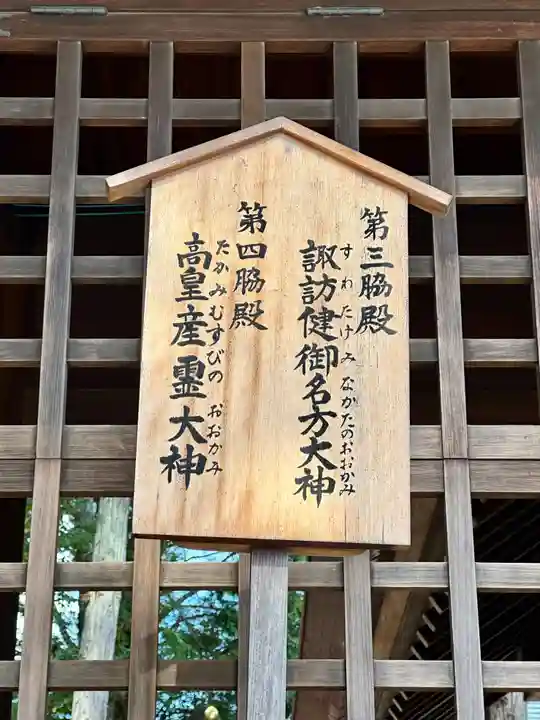 第三脇殿
諏訪健御名方大神
すわたけみなかたのおおかみ
第四脇殿
高皇産霊大神
たかみむすびのおおかみ